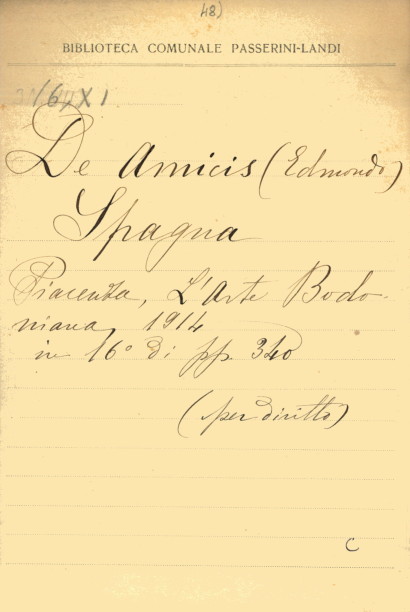 48)
BIBLIOTECA COMUNALE PASSERINI-LANDI
De Amicis (Edmondo)
Spagna
Piacenza, L'Arte Bodo-
niana, 1914
in 16° di pp. 340
(per diritto)
C